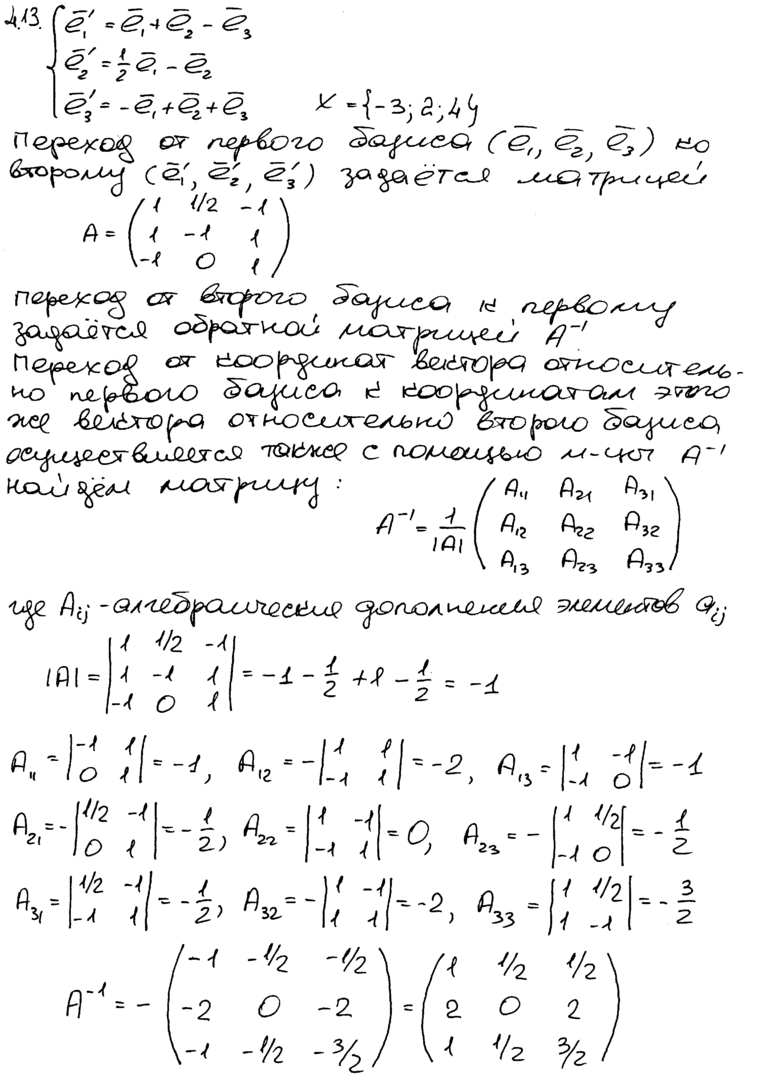 4.13. { ē₁' = ē₁ + ē₂ - ē₃
ē₂' = 1/2 ē₁ - ē₂
ē₃' = -ē₁ + ē₂ + ē₃    X = {-3; 2; 4}
Переход от первого базиса (ē₁, ē₂, ē₃) ко
второму (ē₁', ē₂', ē₃') задаётся матрицей
A = ( 1 1/2 -1
1 -1 1
-1 0 1 )
Переход от второго базиса к первому
задаётся обратной матрицей A⁻¹
Переход от координат вектора относитель-
но первого базиса к координатам этого
же вектора относительно второго базиса
осуществляется также с помощью м-цы A⁻¹
Найдём матрицу:
A⁻¹ = 1/|A| ( A₁₁ A₂₁ A₃₁
A₁₂ A₂₂ A₃₂
A₁₃ A₂₃ A₃₃ )
где Aij - алгебраические дополнения элементов aij
|A| = | 1 1/2 -1
1 -1 1
-1 0 1 | = -1 - 1/2 + 1 - 1/2 = -1
A₁₁ = | -1 1
0 1 | = -1, A₁₂ = - | 1 1
-1 1 | = -2, A₁₃ = | 1 -1
-1 0 | = -1
A₂₁ = - | 1/2 -1
0 1 | = - 1/2, A₂₂ = | 1 -1
-1 1 | = 0, A₂₃ = - | 1 1/2
-1 0 | = - 1/2
A₃₁ = | 1/2 -1
-1 1 | = - 1/2, A₃₂ = - | 1 -1
1 1 | = -2, A₃₃ = | 1 1/2
1 -1 | = - 3/2
A⁻¹ = - ( -1 -1/2 -1/2
-2 0 -2
-1 -1/2 -3/2 ) = ( 1 1/2 1/2
2 0 2
1 1/2 3/2 )